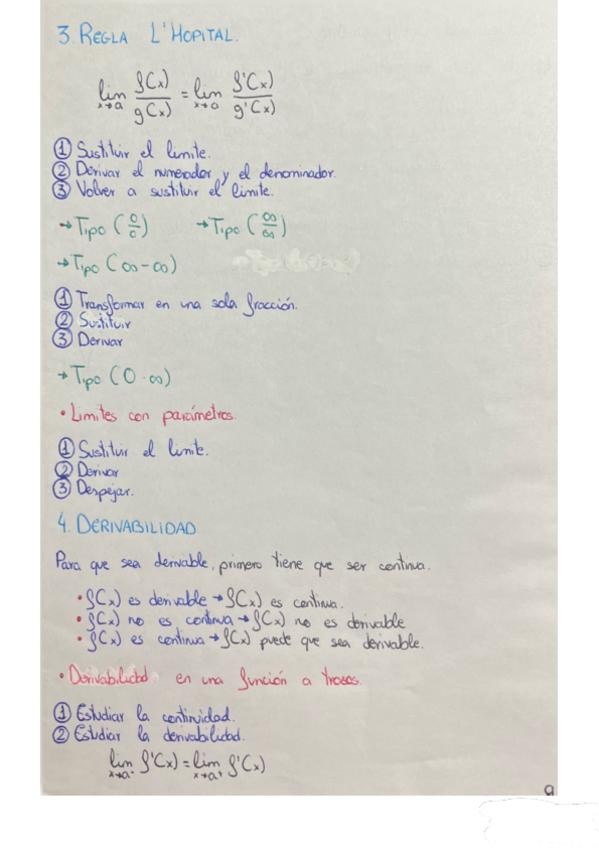 3. REGLA L'HOPITAL.
lim x→a f(x)/g(x) = lim x→a f'(x)/g'(x)
① Sustituir el limite.
② Derivar el numerador y el denominador.
③ Volver a sustituir el limite.
→ Tipo (0/0) → Tipo (∞/∞)
→ Tipo (∞-∞)
① Transformar en una sola fracción.
② Sustituir
③ Derivar
→ Tipo (0·∞)
• Limites con parámetros.
① Sustituir el limite.
② Derivar
③ Despejar.
4. DERIVABILIDAD
Para que sea derivable, primero tiene que ser continua.
• f(x) es derivable → f(x) es continua.
• f(x) no es continua → f(x) no es derivable
• f(x) es continua → f(x) puede que sea derivable.
• Derivabilidad en una función a trozos.
① Estudiar la continuidad.
② Estudiar la derivabilidad.
lim x→a⁻ f'(x) = lim x→a⁺ f'(x)